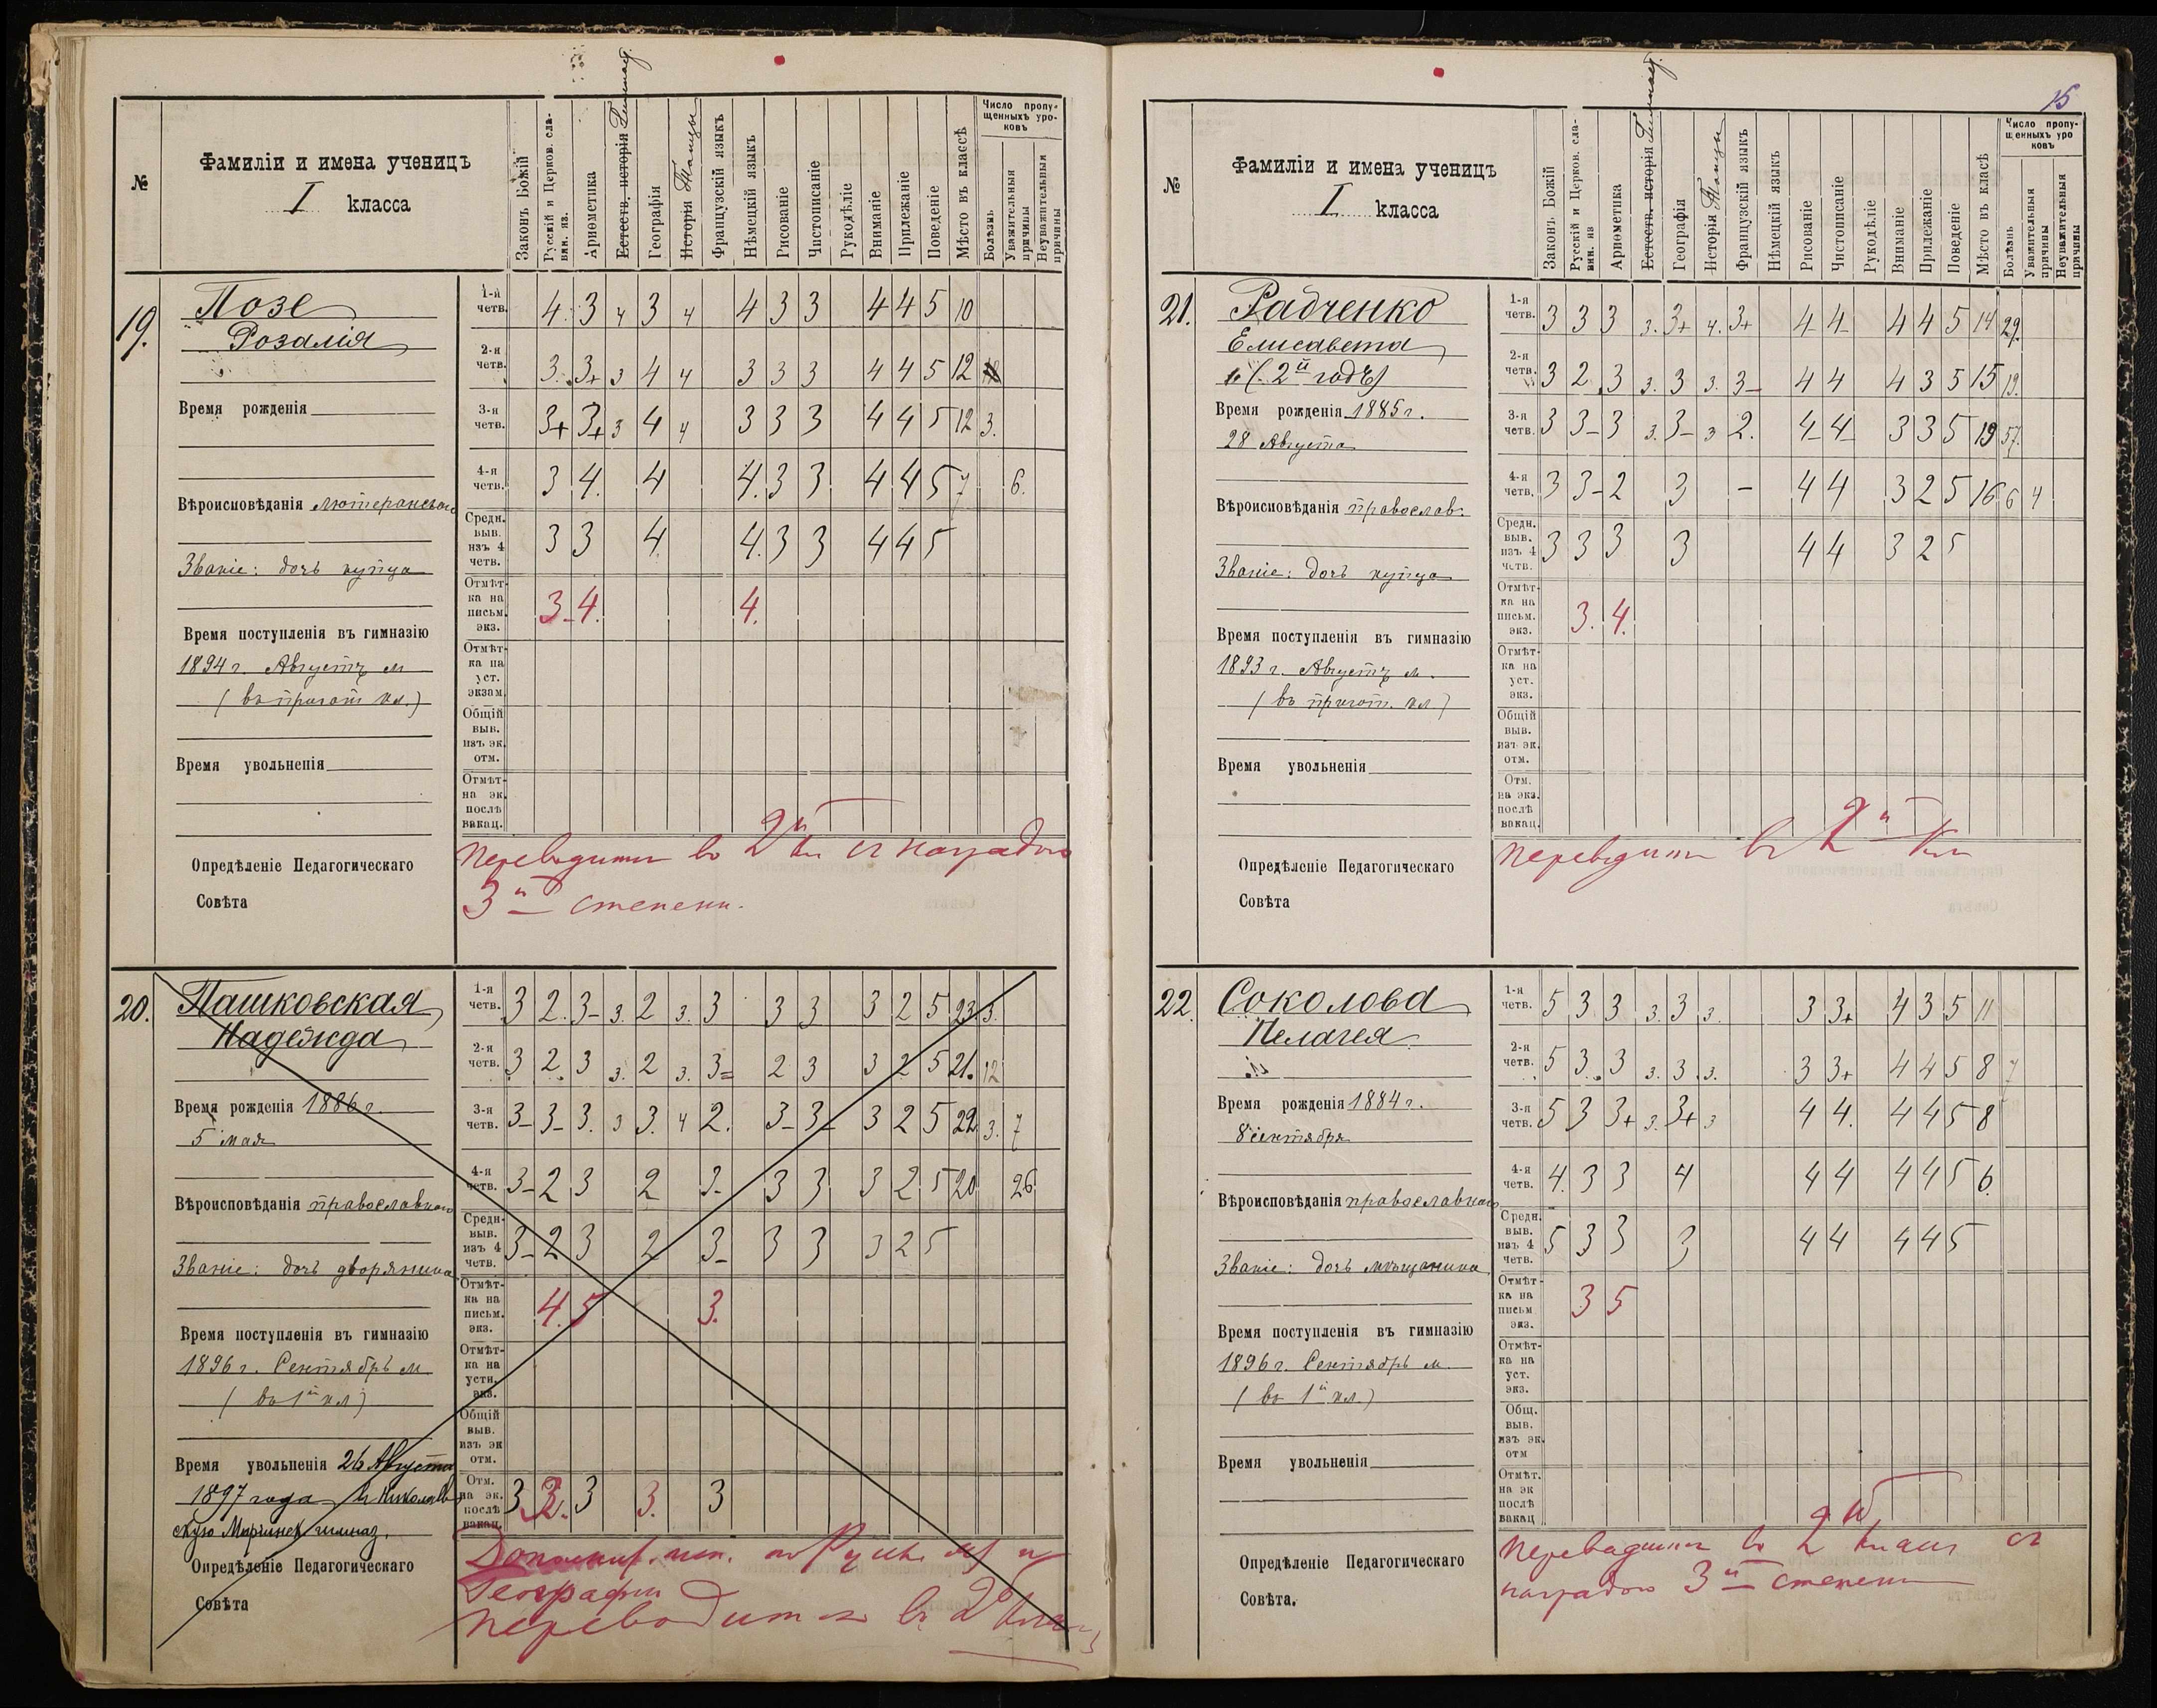 15
№
Фамиліи и имена ученицъ
I класса
Законъ Божій
Русскій и Церков. сла-
вян. яз.
Ариѳметика
Естеств. исторія Гимнаст.
Географія
Исторія Танцы
Французскій языкъ
Нѣмецкій языкъ
Рисованіе
Чистописаніе
Рукодѣліе
Вниманіе
Прилежаніе
Поведеніе
Мѣсто въ классѣ
Число пропу-
щенныхъ уро-
ковъ
Болѣзнь
Уважительныя
причины
Неуважительныя
причины
19.
Позе
Розалія
Время рожденія
Вѣроисповѣданія лютеранскаго
Званіе: дочь купца
Время поступленія въ гимназію
1894 г. Августъ м
(въ пригот кл.)
Время увольненія
Опредѣленіе Педагогическаго
Совѣта
1-я
четв. 4. 3 4 3 4 4 3 3 4 4 5 10
2-я
четв. 3. 3+ 3 4 4 3 3 3 4 4 5 12
3-я
четв. 3+ 3+ 3 4 4 3 3 3 4 4 5 12 3.
4-я
четв. 3 4. 4 4. 3 3 4 4 5 7 6.
Средн.
выв.
изъ 4
четв. 3 3 4 4. 3 3 4 4 5
Отмѣт-
ка на
письм.
экз. 3- 4. 4.
Отмѣт-
ка на
уст.
экзам.
Общій
выв.
изъ эк.
отм.
Отмѣт-
на эк.
послѣ
вакац.
Переводится въ 2й кл съ наградою
3й степени.
20.
Пашковская
Надежда
Время рожденія 1886 г.
5 мая
Вѣроисповѣданія православнаго
Званіе: дочь дворянина
Время поступленія въ гимназію
1896 г. Сентябрь м
(въ 1й кл)
Время увольненія 26 Августа
1897 года въ Николаев
скую Маріинск гимназ.
Опредѣленіе Педагогическаго
Совѣта
1-я
четв. 3 2. 3- 3. 2 3. 3 3 3 3 2 5 23 3.
2-я
четв. 3 2 3 3. 2 3. 3= 2 3 3 2 5 21. 12
3-я
четв. 3- 3- 3. 3 3. 4 2. 3- 3- 3 2 5 22 3. 7
4-я
четв. 3- 2 3 2 3- 3 3 3 2 5 20 26.
Средн.
выв.
изъ 4
четв. 3- 2 3 2 3- 3 3 3 2 5
Отмѣт-
ка на
письм.
экз. 4. 5 3.
Отмѣт-
ка на
устн.
экз.
Общій
выв.
изъ эк
отм.
Отм.
на эк.
послѣ
вакац. 3 3. 3 3. 3
Географіи
Переводится въ 2й классъ
№
Фамиліи и имена ученицъ
I класса
Законъ Божій
Русскій и Церков. сла-
вян. яз
Ариѳметика
Естеств. исторія Гимнаст.
Географія
Исторія Танцы
Французскій языкъ
Нѣмецкій языкъ
Рисованіе
Чистописаніе
Рукодѣліе
Вниманіе
Прилежаніе
Поведеніе
Мѣсто въ класѣ
Число пропу-
щенныхъ уро
ковъ
Болѣзнь
Уважительныя
причины
Неуважительныя
причины
21.
Радченко
Елисавета
(2й годъ)
Время рожденія 1885 г.
28 Августа
Вѣроисповѣданія православ.
Званіе: дочь купца
Время поступленія въ гимназію
1893 г. Августъ м.
(въ пригот. кл)
Время увольненія
Опредѣленіе Педагогическаго
Совѣта
1-я
четв. 3 3 3 3. 3+ 4. 3+ 4- 4- 4 4 5 14 29.
2-я
четв. 3 2 3 3. 3 3. 3- 4 4 4 3 5 15 19.
3-я
четв. 3 3- 3 3. 3- 3 2. 4- 4- 3 3 5 19 57.
4-я
четв. 3 3- 2 3 - 4 4 3 2 5 16 6 4
Средн.
выв.
изъ 4
четв. 3 3 3 3 4 4 3 2 5
Отмѣт-
ка на
письм.
экз. 3. 4.
Отмѣт-
ка на
уст.
экз.
Общій
выв.
изъ эк.
отм.
Отм.
на экз.
послѣ
вакац.
Переводится въ 2й кл
22.
Соколова
Пелагея
Время рожденія 1884 г.
8 сентября
Вѣроисповѣданія православнаго
Званіе: дочь мѣщанина
Время поступленія въ гимназію
1896 г. Сентябрь м.
(въ 1й кл.)
Время увольненія
Опредѣленіе Педагогическаго
Совѣта.
1-я
четв. 5 3 3 3. 3 3. 3 3+ 4 3 5 11
2-я
четв. 5 3 3 3. 3 3. 3 3+ 4 4 5 8 7
3-я
четв. 5 3 3+ 3. 3+ 3 4 4. 4 4 5 8
4-я
четв. 4. 3 3 4 4 4 4 4 5 6.
Средн.
выв.
изъ 4
четв. 5 3 3 3 4 4 4 4 5
Отмѣт-
ка на
письм
экз. 3 5
Отмѣт-
ка на
уст.
экз.
Общ.
выв.
изъ эк.
отм
Отмѣт.
на эк
послѣ
вакац
Переводится въ 2й классъ съ
наградою 3й степени